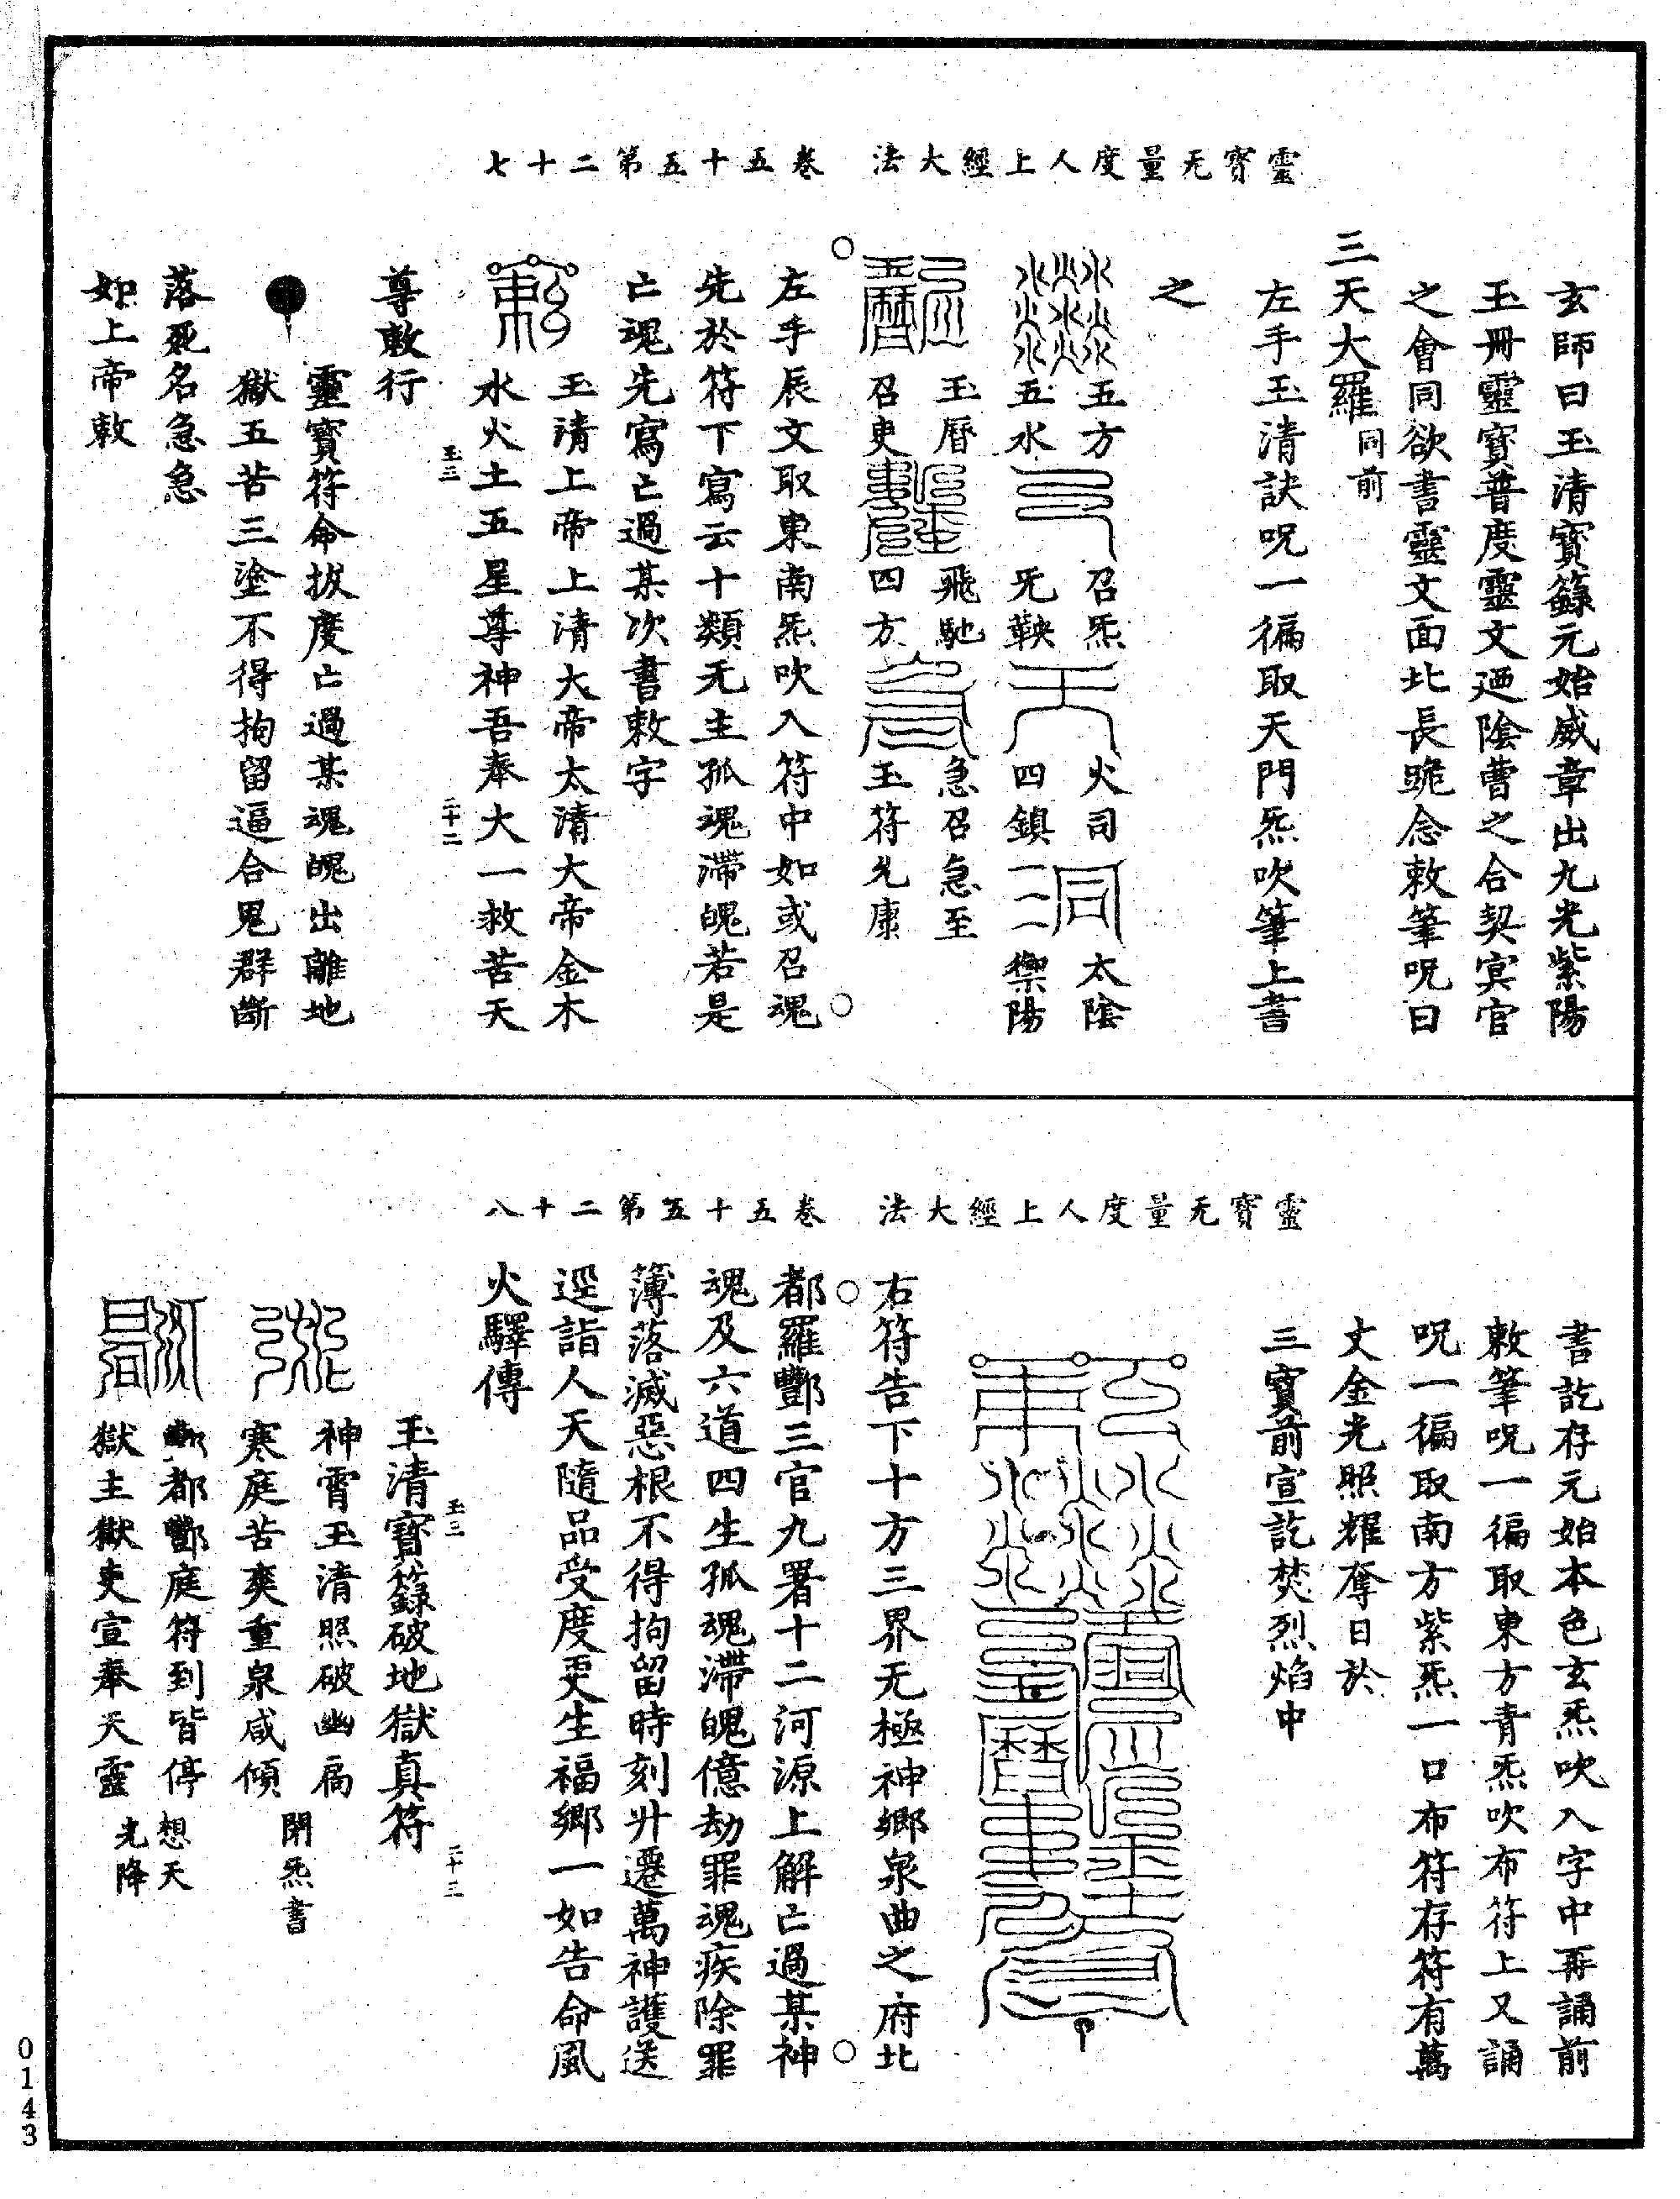 靈寶无量度人上經大法　卷五十五第二十七
玄師曰玉清寶籙元始威章出九光紫陽
玉冊靈寶普度靈文廼陰曹之合契冥官
之會同欲書靈文面北長跪念敕筆呪曰
三天大羅同前
左手玉清訣呪一徧取天門炁吹筆上書
之
五方召炁火司太陰
五水旡鞅四鎮一一一禦陽
玉曆飛馳急召急至
召吏四方玉符允康
左手辰文取東南炁吹入符中如或召魂
先於符下寫云十類无主孤魂滯魄若是
亡魂先寫亡過某次書敕字
玉清上帝上清大帝太清大帝金木
水火土五星尊神吾奉大一救苦天
尊敕行
玉三　二十二
靈寶符命拔度亡過某魂魄出離地
獄五苦三塗不得拘留逼合鬼群斷
落死名急急
如上帝敕
靈寶无量度人上經大法　卷五十五第二十八
書訖存元始本色玄炁吹入字中再誦前
敕筆呪一徧取東方青炁吹布符上又誦
呪一徧取南方紫炁一口布符存符有萬
丈金光照耀奪日於
三寶前宣訖焚烈焰中
右符告下十方三界无極神鄉泉曲之府北
都羅酆三官九署十二河源上解亡過某神
魂及六道四生孤魂滯魄億劫罪魂疾除罪
簿落滅惡根不得拘留時刻升遷萬神護送
逕詣人天隨品受度更生福鄉一如告命風
火驛傳
玉清寶籙破地獄真符
玉三　二十三
神霄玉清照破幽扃
寒庭苦爽重泉咸傾閉炁書
都酆庭符到皆停
獄主獄吏宣奉天靈想天光降
0143